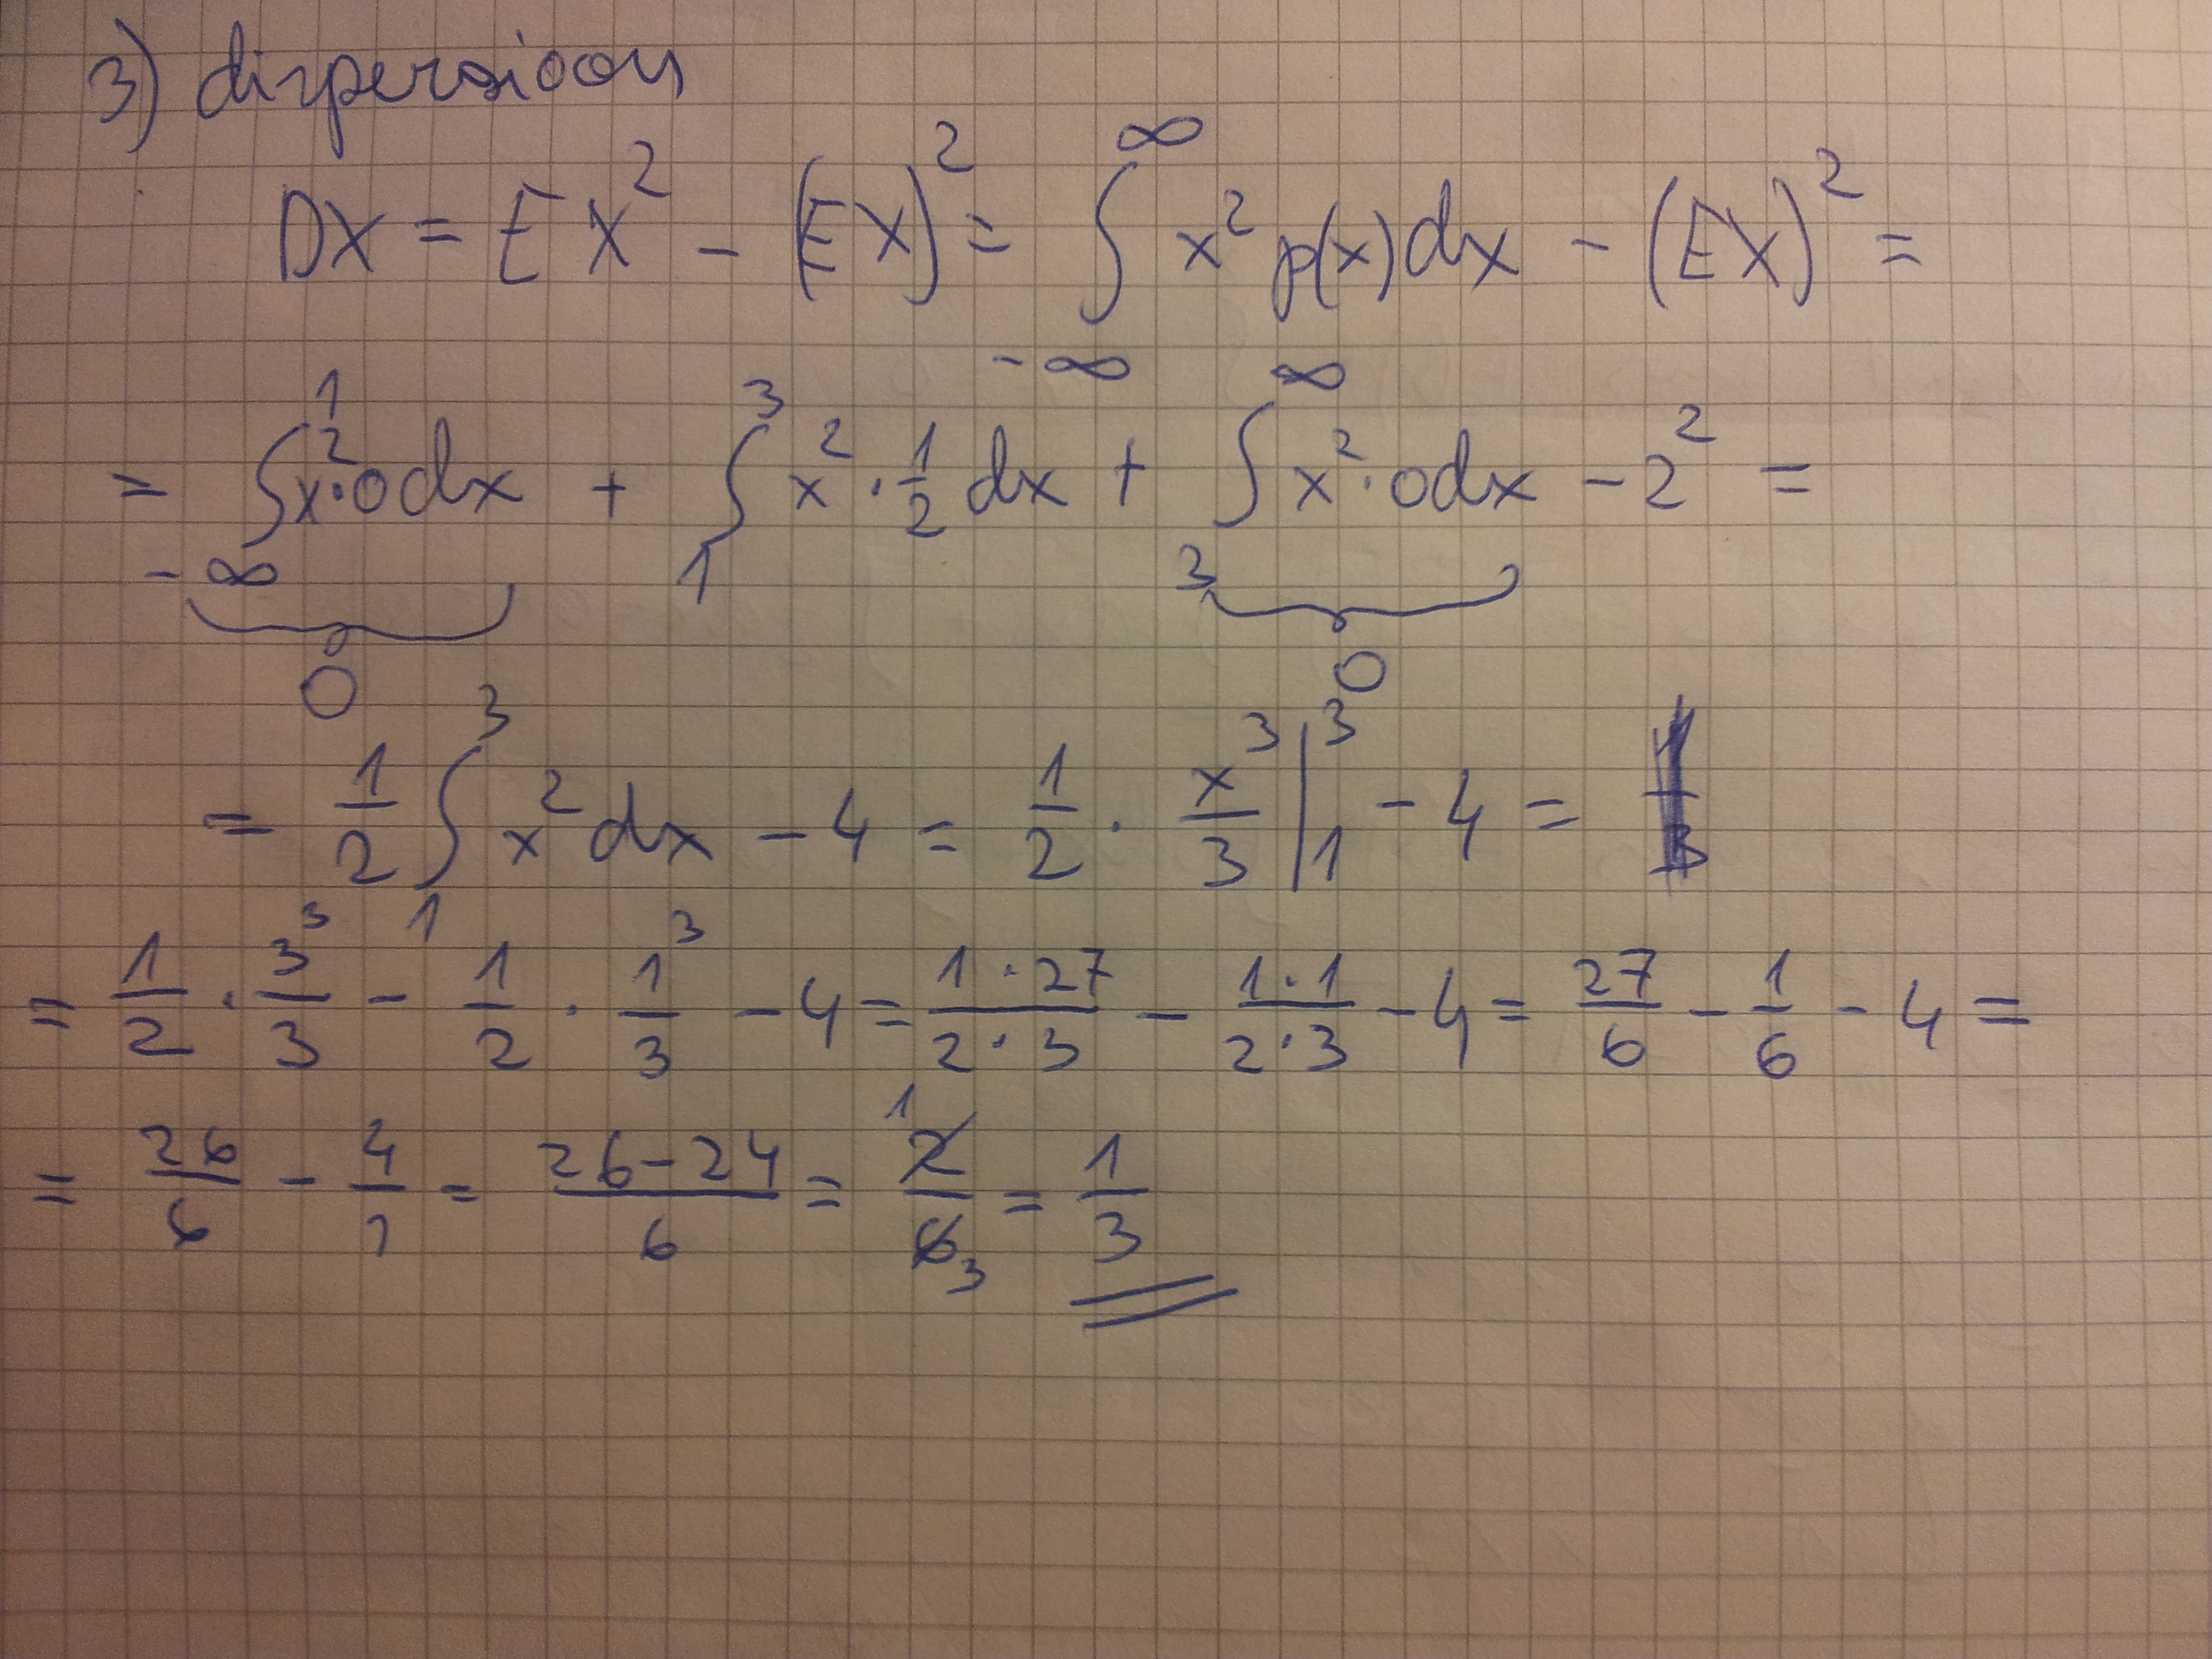 3) dispersioon
DX = EX² - (EX)² = ∫_{-∞}^{∞} x² p(x)dx - (EX)² =
= ∫_{-∞}^{1} x²·0dx + ∫_{1}^{3} x²·1/2 dx + ∫_{3}^{∞} x²·0dx - 2² =
0 0
= 1/2 ∫_{1}^{3} x²dx - 4 = 1/2 · x³/3 |_{1}^{3} - 4 =
= 1/2 · 3³/3 - 1/2 · 1³/3 - 4 = 1·27/2·3 - 1·1/2·3 - 4 = 27/6 - 1/6 - 4 =
= 26/6 - 4/1 = 26-24/6 = 2/6 1 3 = 1/3